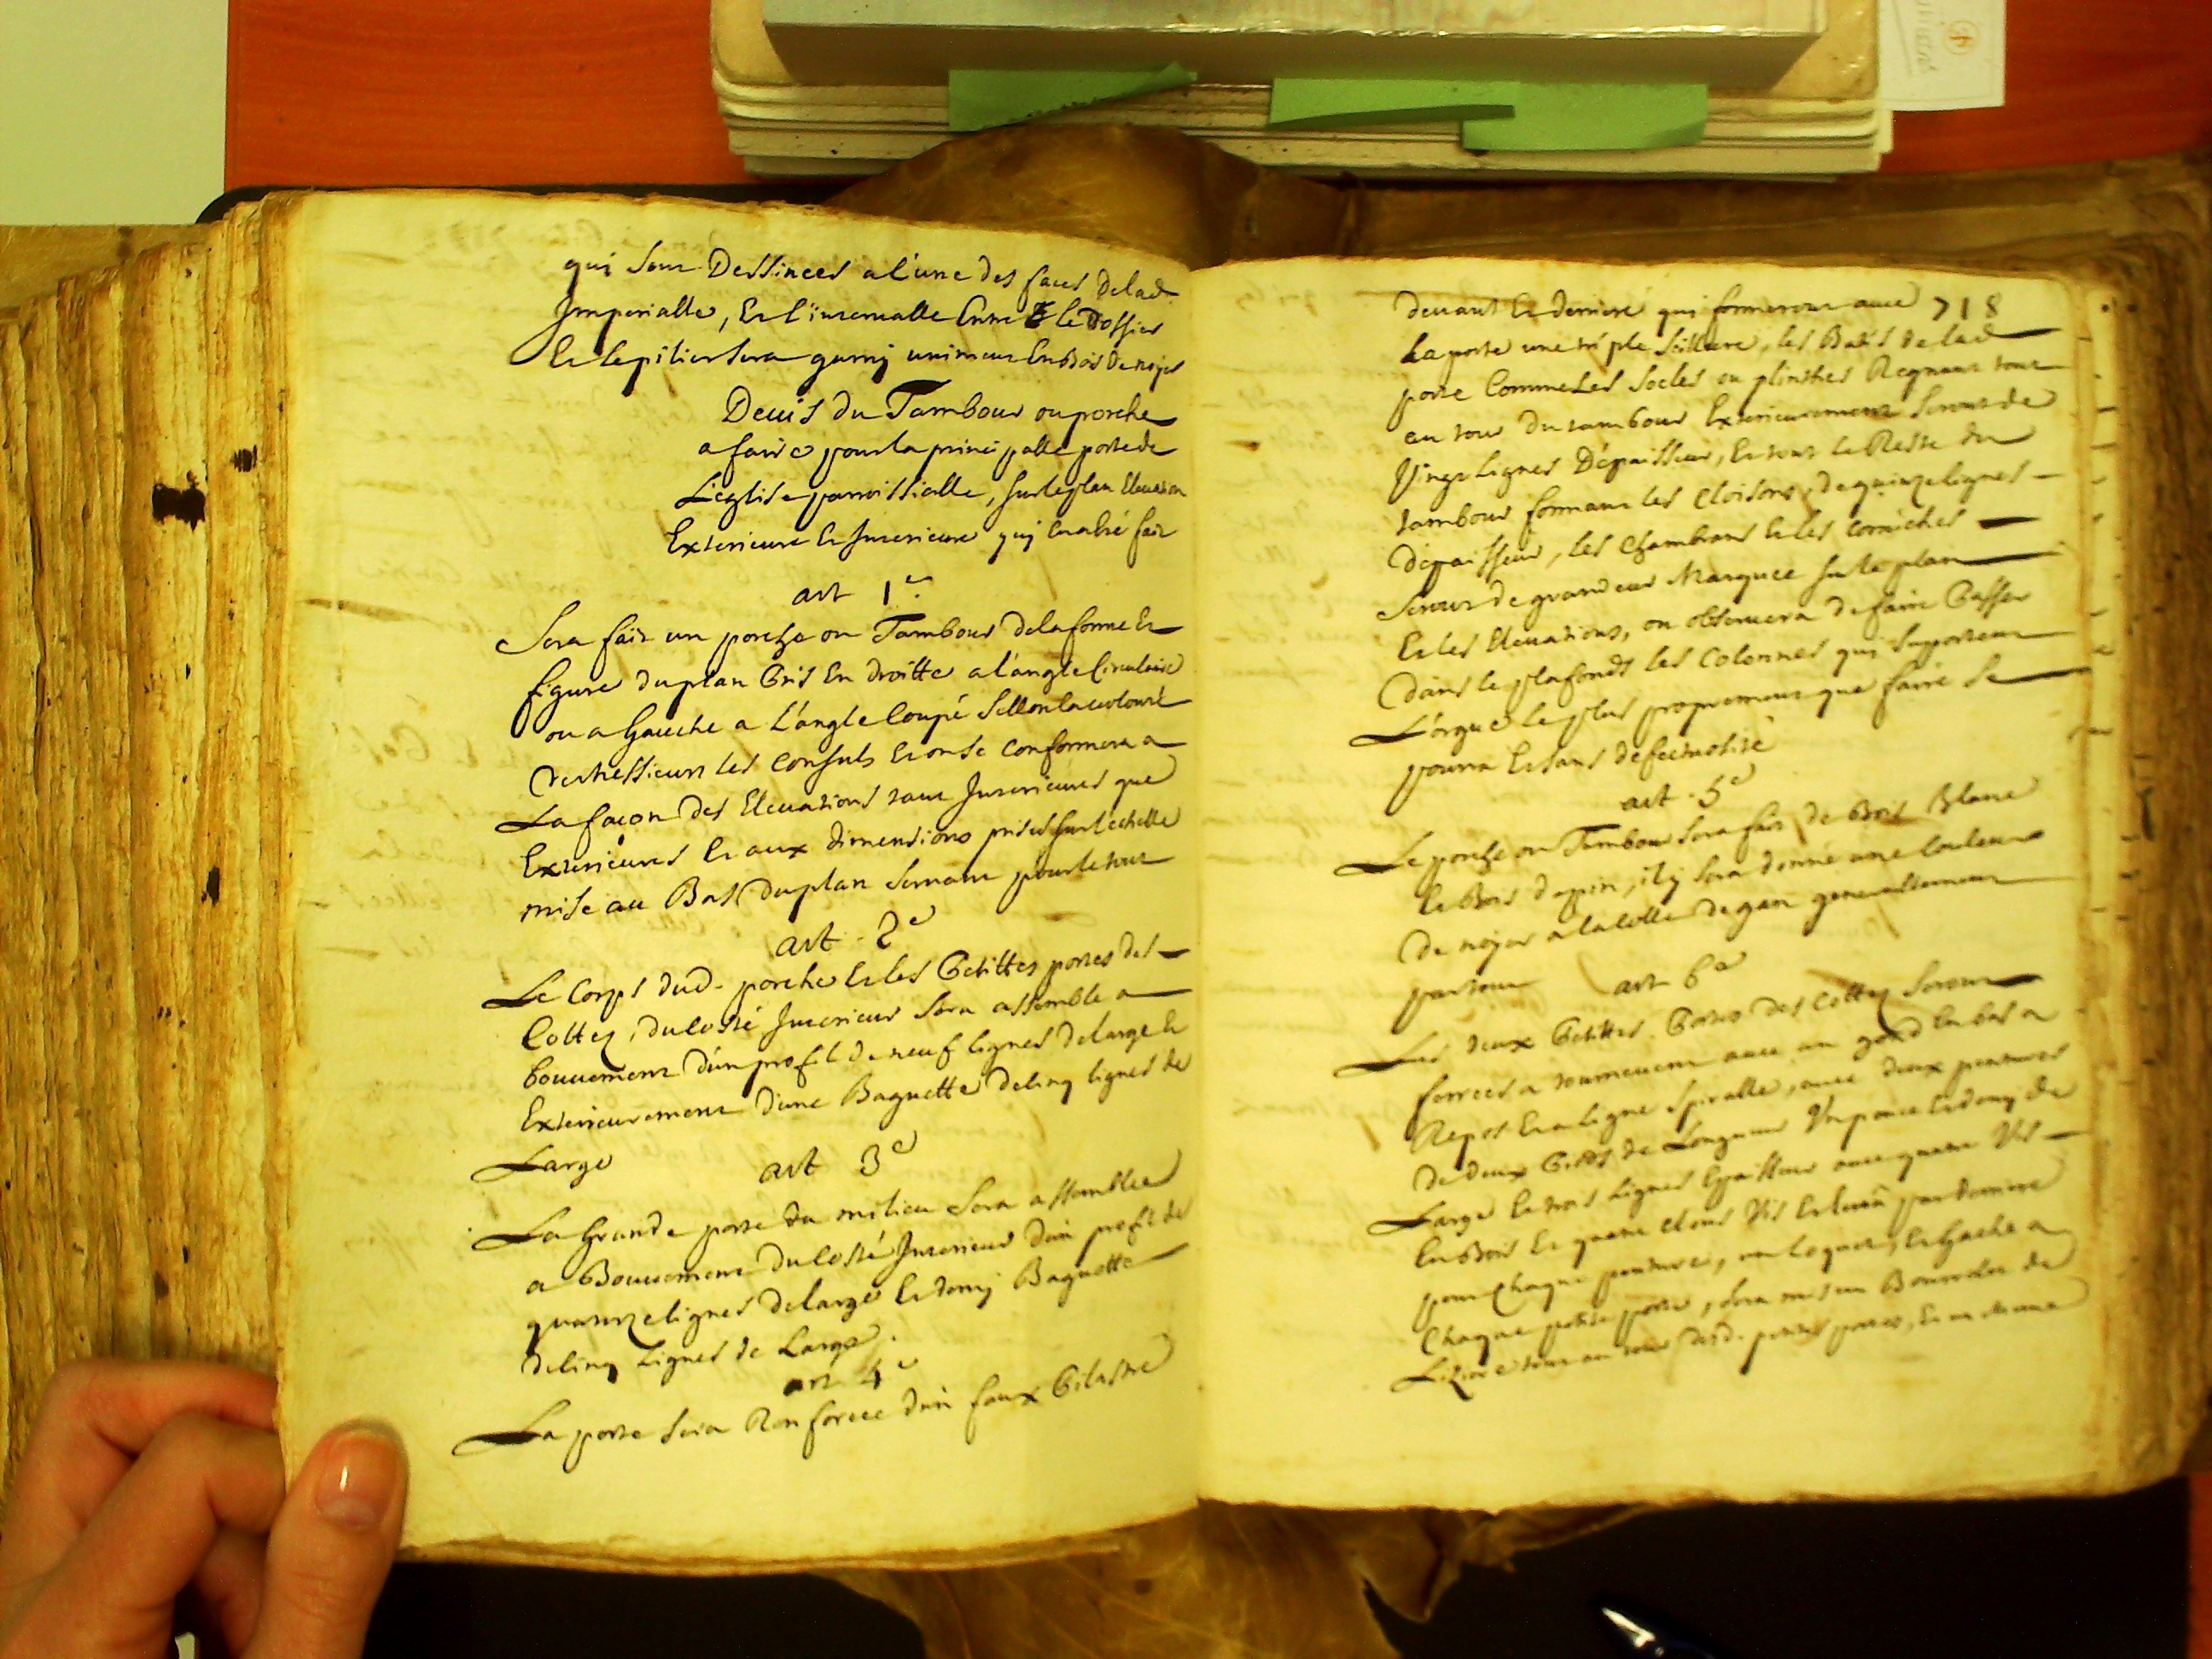 qui sont Dessinees a l'une des faces de lad.
Imperialle, Et l'intervalle Entre le Dossier
Et le pilier sera garny uniment En Bois de noyer
Devis du Tambour ou porche
a faire pour la principalle porte de
L'eglise parroissialle, sur le plan Elevation
Exterieure Et Interieure qui En a été fait
art 1er.
Sera fait un porche ou Tambour de la forme Et
figure du plan Pris En droitte a l'angle Circulaire
ou a Gauche a L'angle Coupé sellon la volonté
de Messieurs les Consuls Et on se conformera a
La façon des Elevations tant Interieures que
Exterieures Et aux dimensions prises sur l'echelle
mise au Bas du plan servant pour le tout
art. 2e
Le Corps dud. porche Et les Petittes portes des
Cottez, du costé Interieur sera assemblé a
bouvement d'un profil de neuf lignes de large Et
Exterieurement d'une Baguette de Cinq lignes de
Large
art 3e
La Grande porte du milieu sera assemblée
a Bouvement du costé Interieur d'un profil de
quatorze lignes de large Et demy Baguette
de Cinq Lignes de Large.
art 4e
La porte sera Renforcée d'un faux Pilastre
devant Et derriere qui formeront avec 718
La porte une triple feillure, les Batis de lad.
porte Comme Les socles ou plinthes Regnant tout
au tour du tambour Exterieurement seront de
Vingt Lignes D'épaisseur, Et tout le Reste du
tambour formant les Cloisons, de quinze lignes
d'epaisseur, les Chambrans Et les Corniches
seront de grandeur Marquée sur le plan
Et les Elevations, on observera de faire Passer
Dans le plafonds les Colonnes qui suportent
L'orgue le plus proprement que faire se
pourra Et sans defectuosité
art. 5e
Le porche ou Tambour sera fait de Bois Blanc
Et Bois de pin, il y sera donné une Couleur
De noyer a la Colle de gan generallement
partout
art 6e
Les deux Petittes Portes des Cottez seront
ferrées a tournevent avec un gond En bas a
Repos En a Ligne spiralle, avec deux pentures
De deux Pieds de Longueur Un pouce Et demy de
Large Et trois Lignes Epaisseur avec quatre Vis
En Bois Et quatre Clous Vis Et par derriere
pour Chaque penture, un Loquet, Et Gache a
Chaque petite porte, sera mis un Bourrelet de
Liziere tout au tour desd. petites portes, Et au dessus